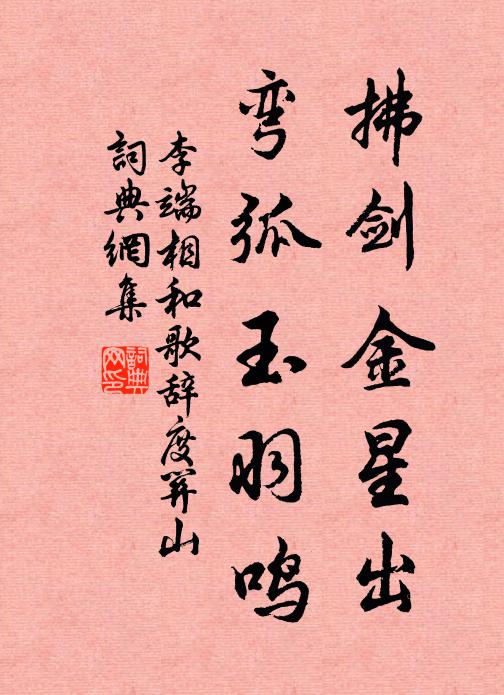 拂剑金星出
弯弧玉羽鸣
李端相和歌辞度关山
詞典網集
詞典網印